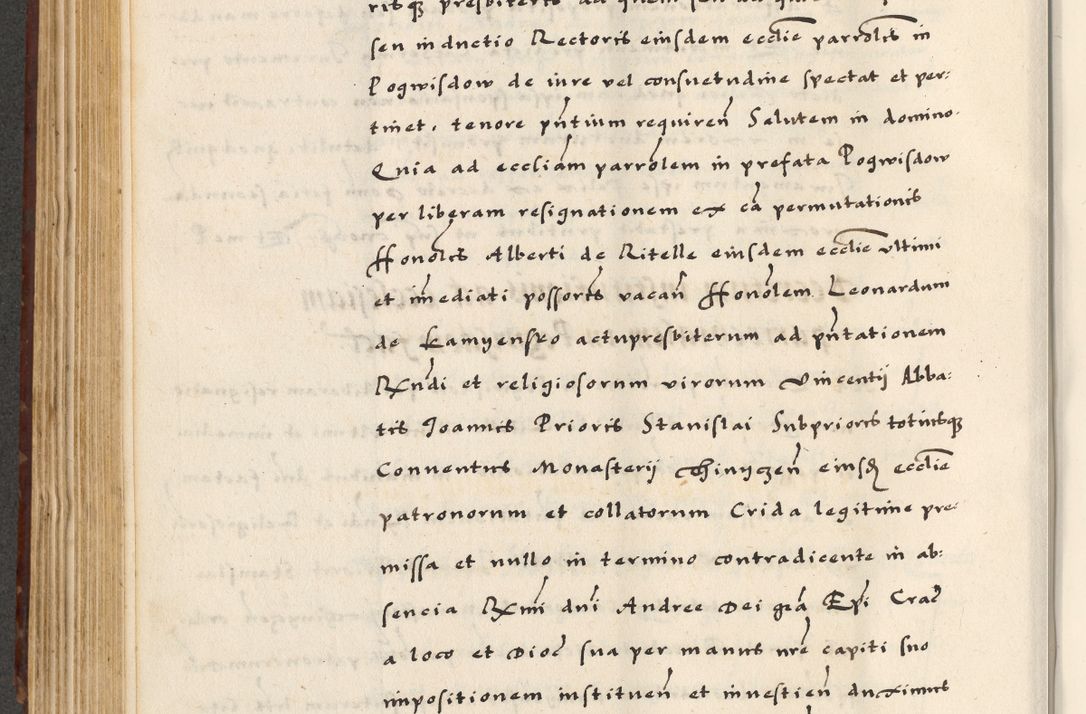 risq₃ presbiteris ad quem seu ad
seu inductio Rectoris eiusdem ecclie parrolis in
Pogwisdow de iure vel consuetudine spectat et per:
tinet, tenore pñtium requireñ Salutem in domino.
Quia ad eccliam parrolem in prefata Pogwisdow
per liberam resignationem ex cã permutationis
Honolis Alberti de Ritelle eiusdem ecclie vltimi
et imediati possoris vacañ Honolem Leonardum
de Kamyensko actupresbiterum ad pñtationem
Rxndi et religiosorum virorum Vincentij Abba:
tis Joannis Prioris Stanislai Subprioris totiusq₃
Conuentus Monasterij Thinyczeñ eiusd ecclie
patronorum et collatorum Crida legitime pre:
missa et nullo in termino contradicente in ab:
sencia Rxmi dni Andree Dei grã Epi Crac
a loco et Dioc sua per manus nre capiti suo
impositionem institueñ et inuestieñ duximus